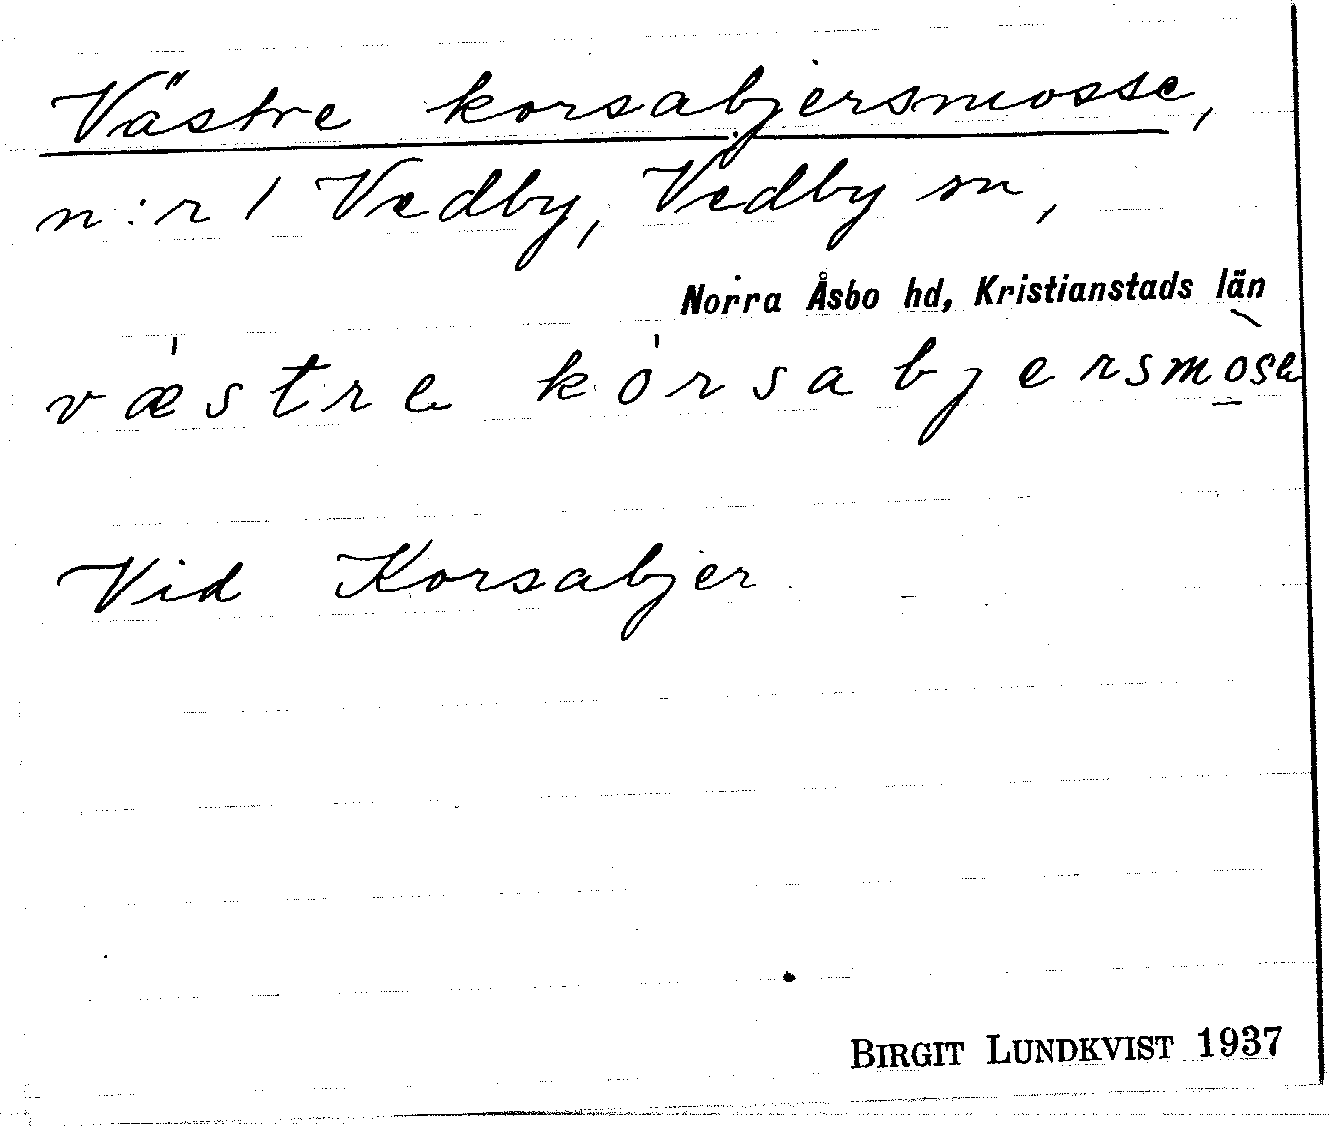 Västre korsabjersmosse,
n:r 1 Vedby, Vedby sn,
Norra Åsbo hd, Kristianstads län
væ̀stre kórsabjersmòse
Vid Korsabjer
BIRGIT LUNDKVIST 1937